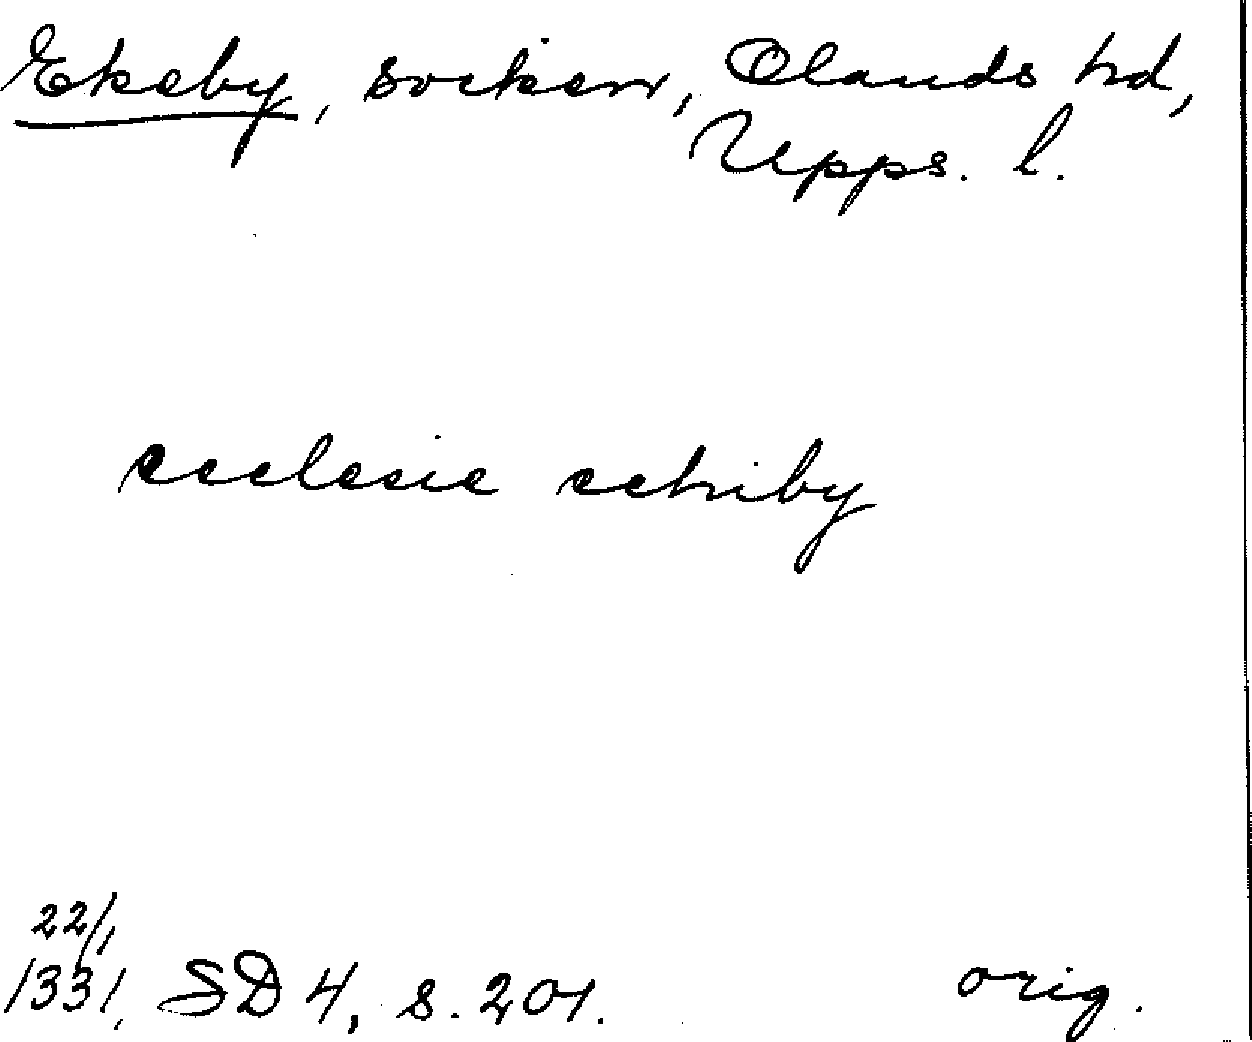 Ekeby, socken, Olands hd,
Upps. l.
ecclesie echriby
22/1
1331, SD 4, s. 201.
orig.